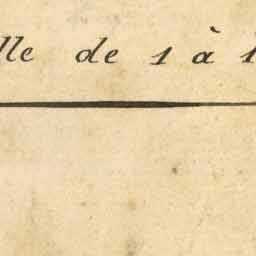 lle de 1 à 1